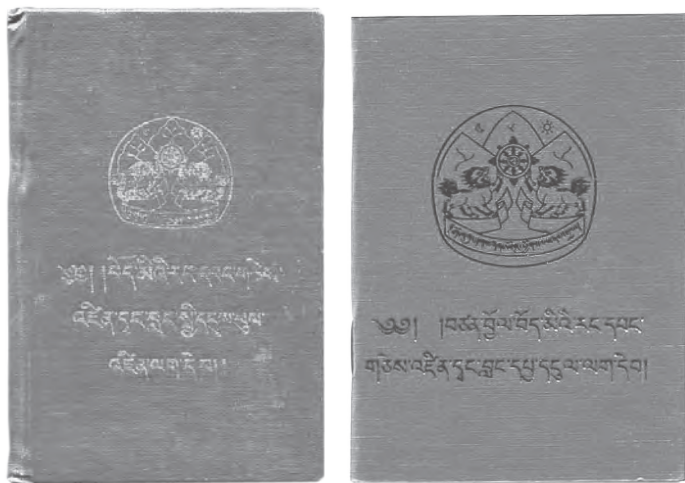 ༄༅། །བོད་མིའི་རང་དབང་
འཛིན་དྭང་བླང་
འཛིན་ལག་དེབ།
༄༅། །བཙན་བྱོལ་བོད་མིའི་རང་དབང་
གཅེས་འཛིན་དྭང་བླང་དཔྱ་དངུལ་ལག་དེབ།